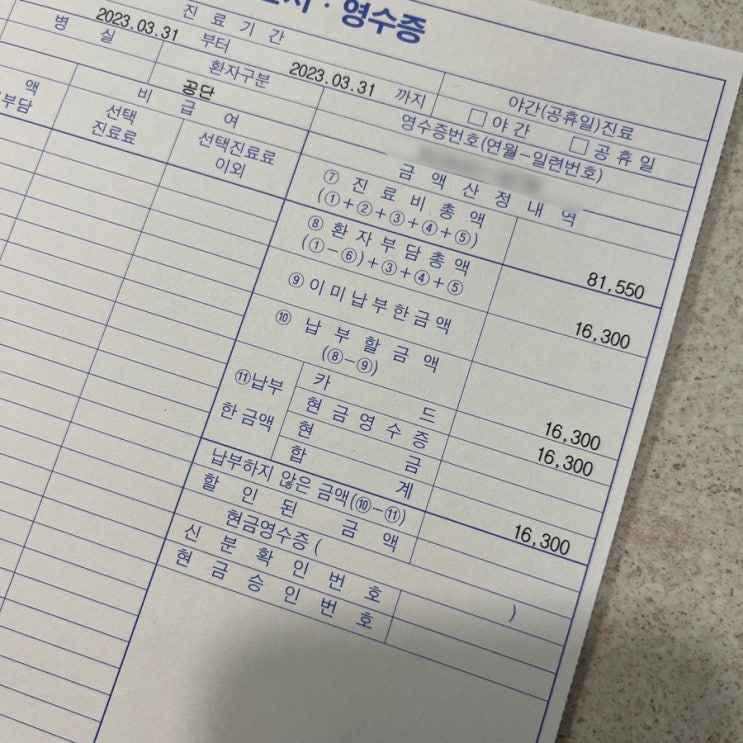 영수증
진 료 기 간
2023.03.31 부터
2023.03.31 까지
야간(공휴일)진료
병 실
환자구분
공단
□ 야 간 □ 공 휴 일
영수증번호(연월-일련번호)
액
부담
비 급 여
선택
진료료
선택진료료
이외
금 액 산 정 내 역
⑦ 진 료 비 총 액
(①+②+③+④+⑤)
81,550
⑧ 환 자 부 담 총 액
(①-⑥)+③+④+⑤
16,300
⑨ 이 미 납 부 한 금 액
⑩ 납 부 할 금 액
(⑧-⑨)
16,300
⑪납부
한 금액
카 드
16,300
현 금 영 수 증
현 금
합 계
16,300
납부하지 않은 금액(⑩-⑪)
할 인 된 금 액
현금영수증 ( )
신 분 확 인 번 호
현 금 승 인 번 호